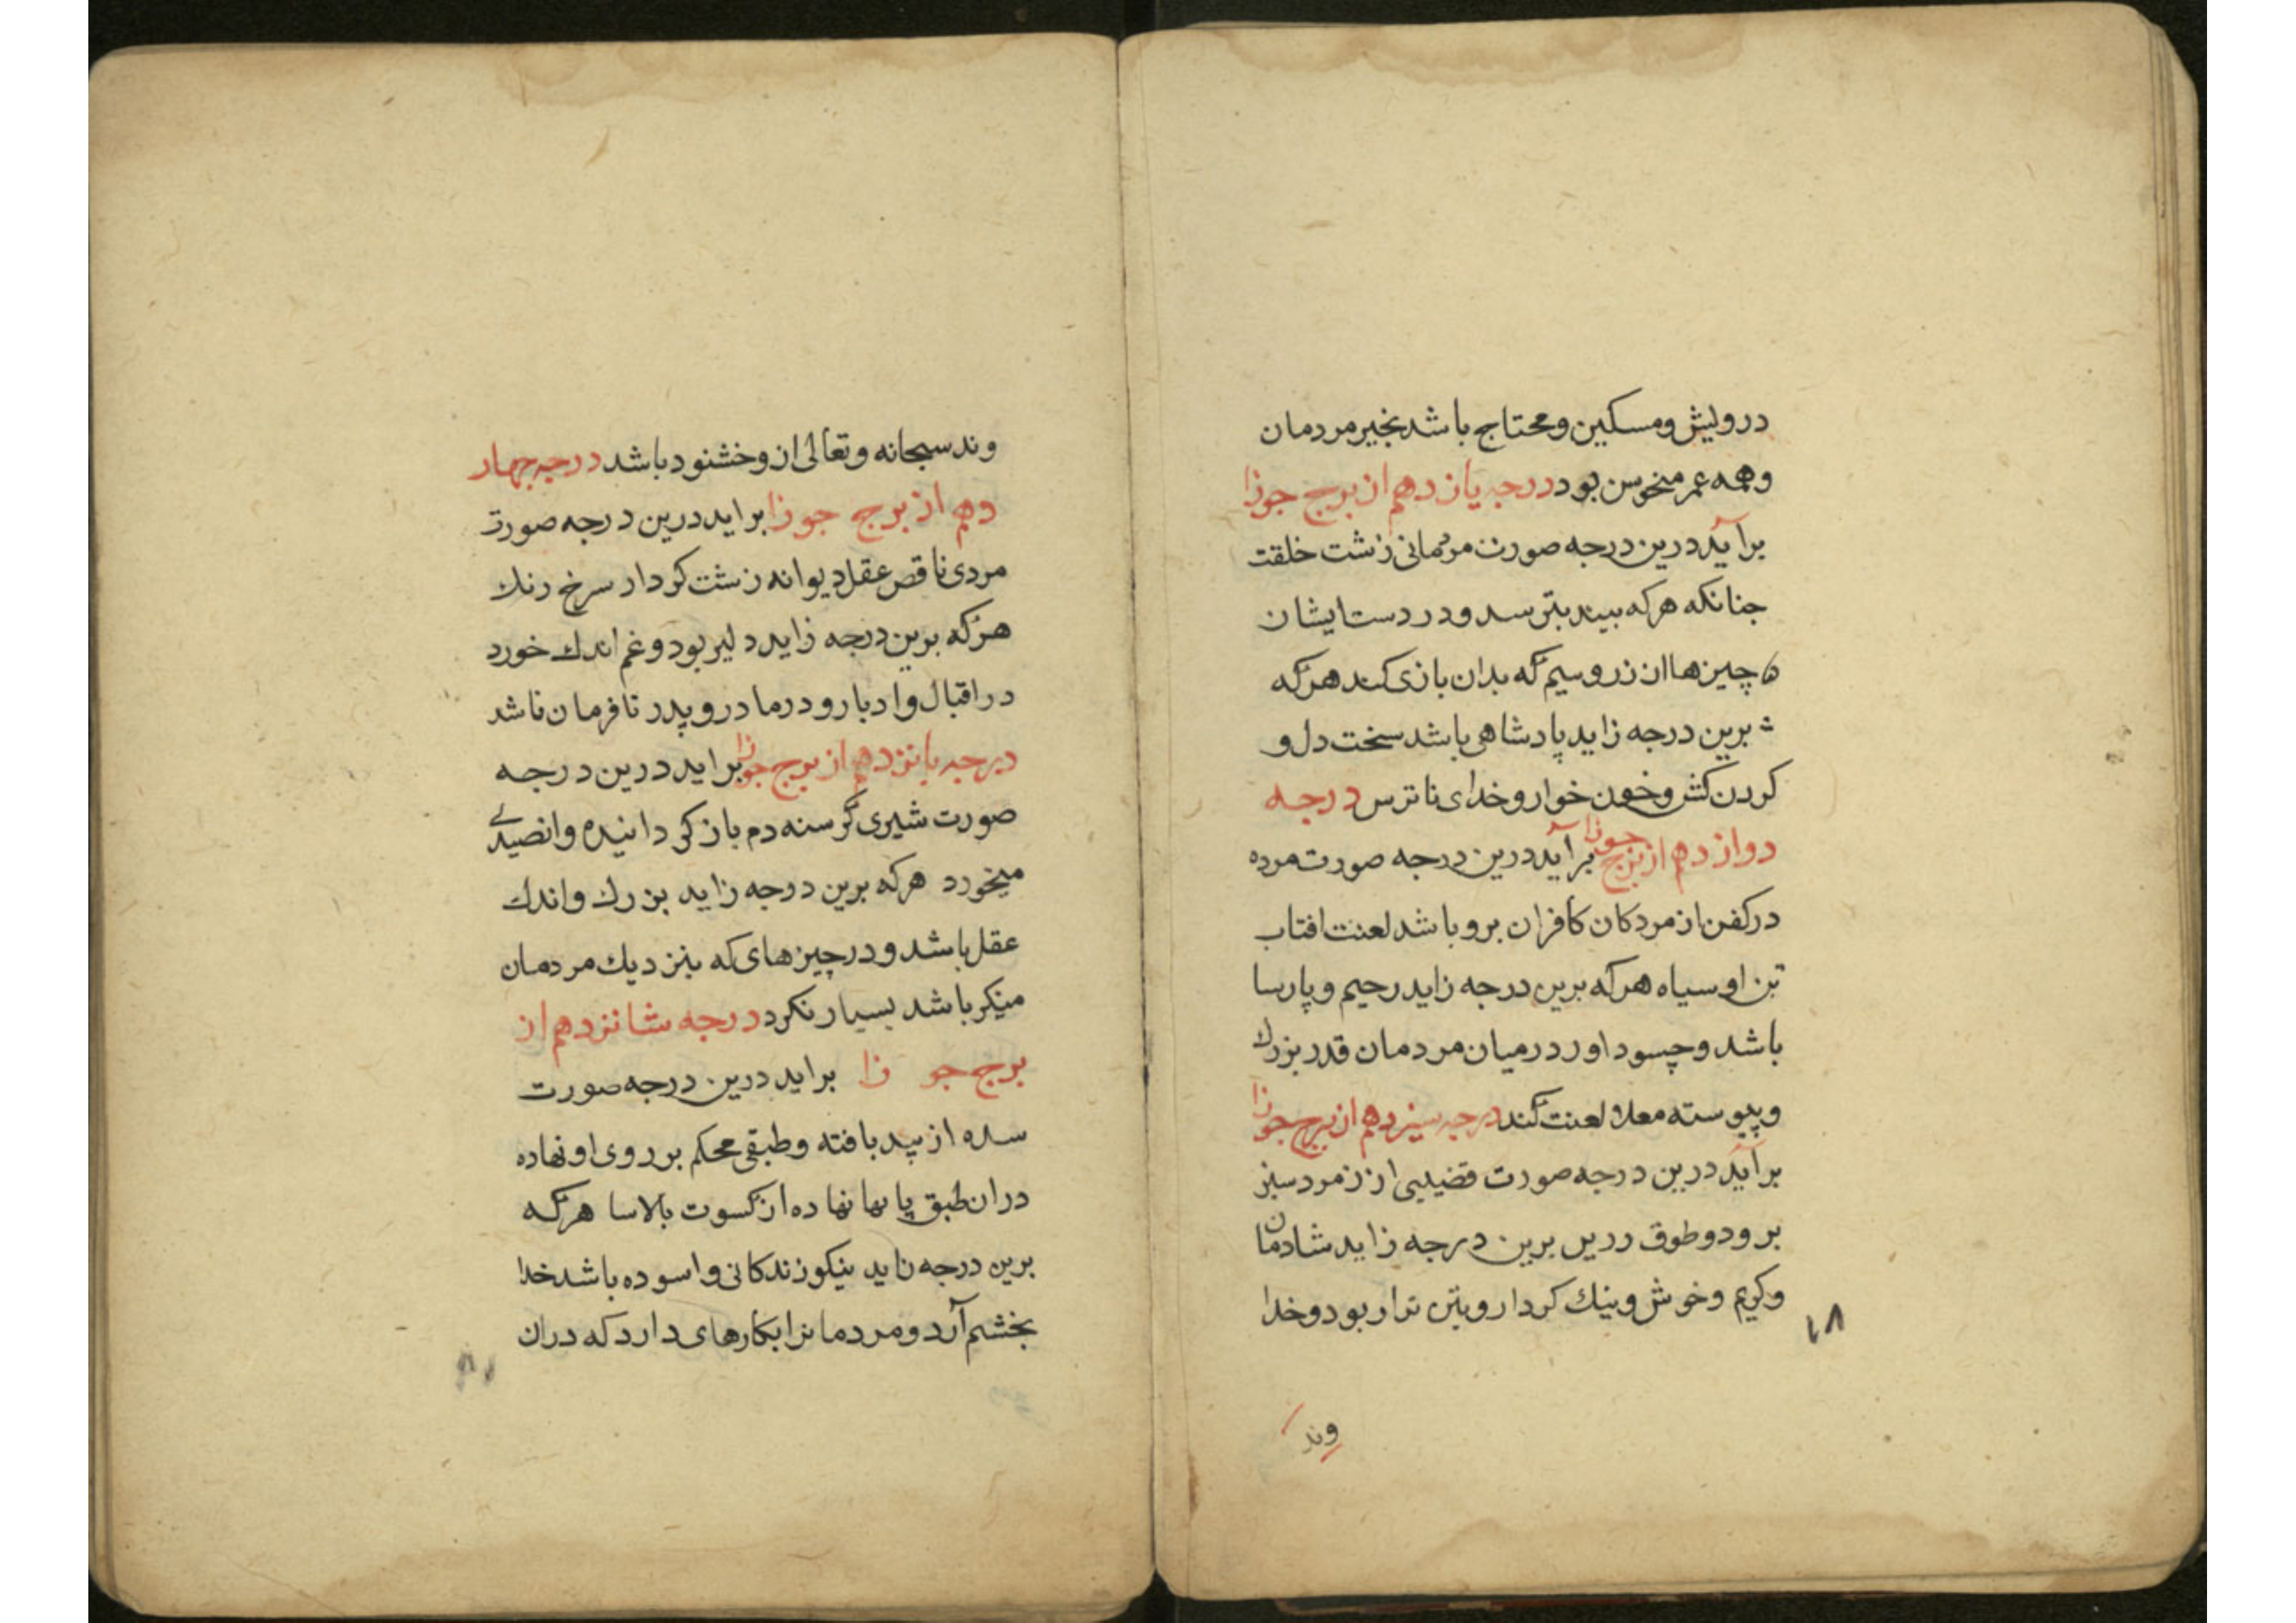 درویش ومسکین ومحتاج باشد بخیر مردمان
وهمه عمر منحوس بود درجه یازدهم از برج جوزا
برآید درین درجه صورت مردمانی زشت خلقت
جنانکه هرکه بیند بترسد ودر دست ایشان
چیزها از زر وسیم که بدان بازی کنند هرکه
برین درجه زاید پادشاهی باشد سخت دل و
کردن کش وخون خوار وخدای ناترس درجه
دوازدهم از برج جوزا برآید درین درجه صورت مرده
در کفن از مردکان کافران برو باشد لعنت افتاب
تن او سیاه هرکه برین درجه زاید رحیم وپارسا
باشد وحسود اور درمیان مردمان قدر بزرك
وپیوسته لعنت کند درجه سیزدهم از برج جوزا
برآید درین درجه صورت قضیبی از زمرد سبز
برو دو طوق زرین برین درجه زاید شادمان
وکریم وخوش ونیك کردار وبود وخدا
۱۸
وند
وند سبحانه وتعالی ازو خشنود باشد درجه چهار
دهم از برج جوزا براید درین درجه صورت
مردی ناقص عقل دیوانه زشت کردار سرخ رنك
هرکه برین درجه زاید دلیر بود وغم اندك خورد
در اقبال وادبار ودر مادر وپدر نافرمان باشد
درجه پانزدهم از برج جوزا براید درین درجه
صورت شیری کرسنه دم باز کردانیده وانصیدی
میخورد هرکه برین درجه زاید بزرك واندك
عقل باشد ودر چیزهای که بنزدیك مردمان
منکر باشد بسیار نکرد درجه شانزدهم از
برج جوزا براید درین درجه صورت
سده از بید بافته وطبقی محکم بر روی او نهاده
در ان طبق نهاده از کسوت بالاسا هرکه
برین درجه زاید نیکو زندکانی واسوده باشد خدا
بخشم آرد ومردمانرا بکارهای دارد که دران